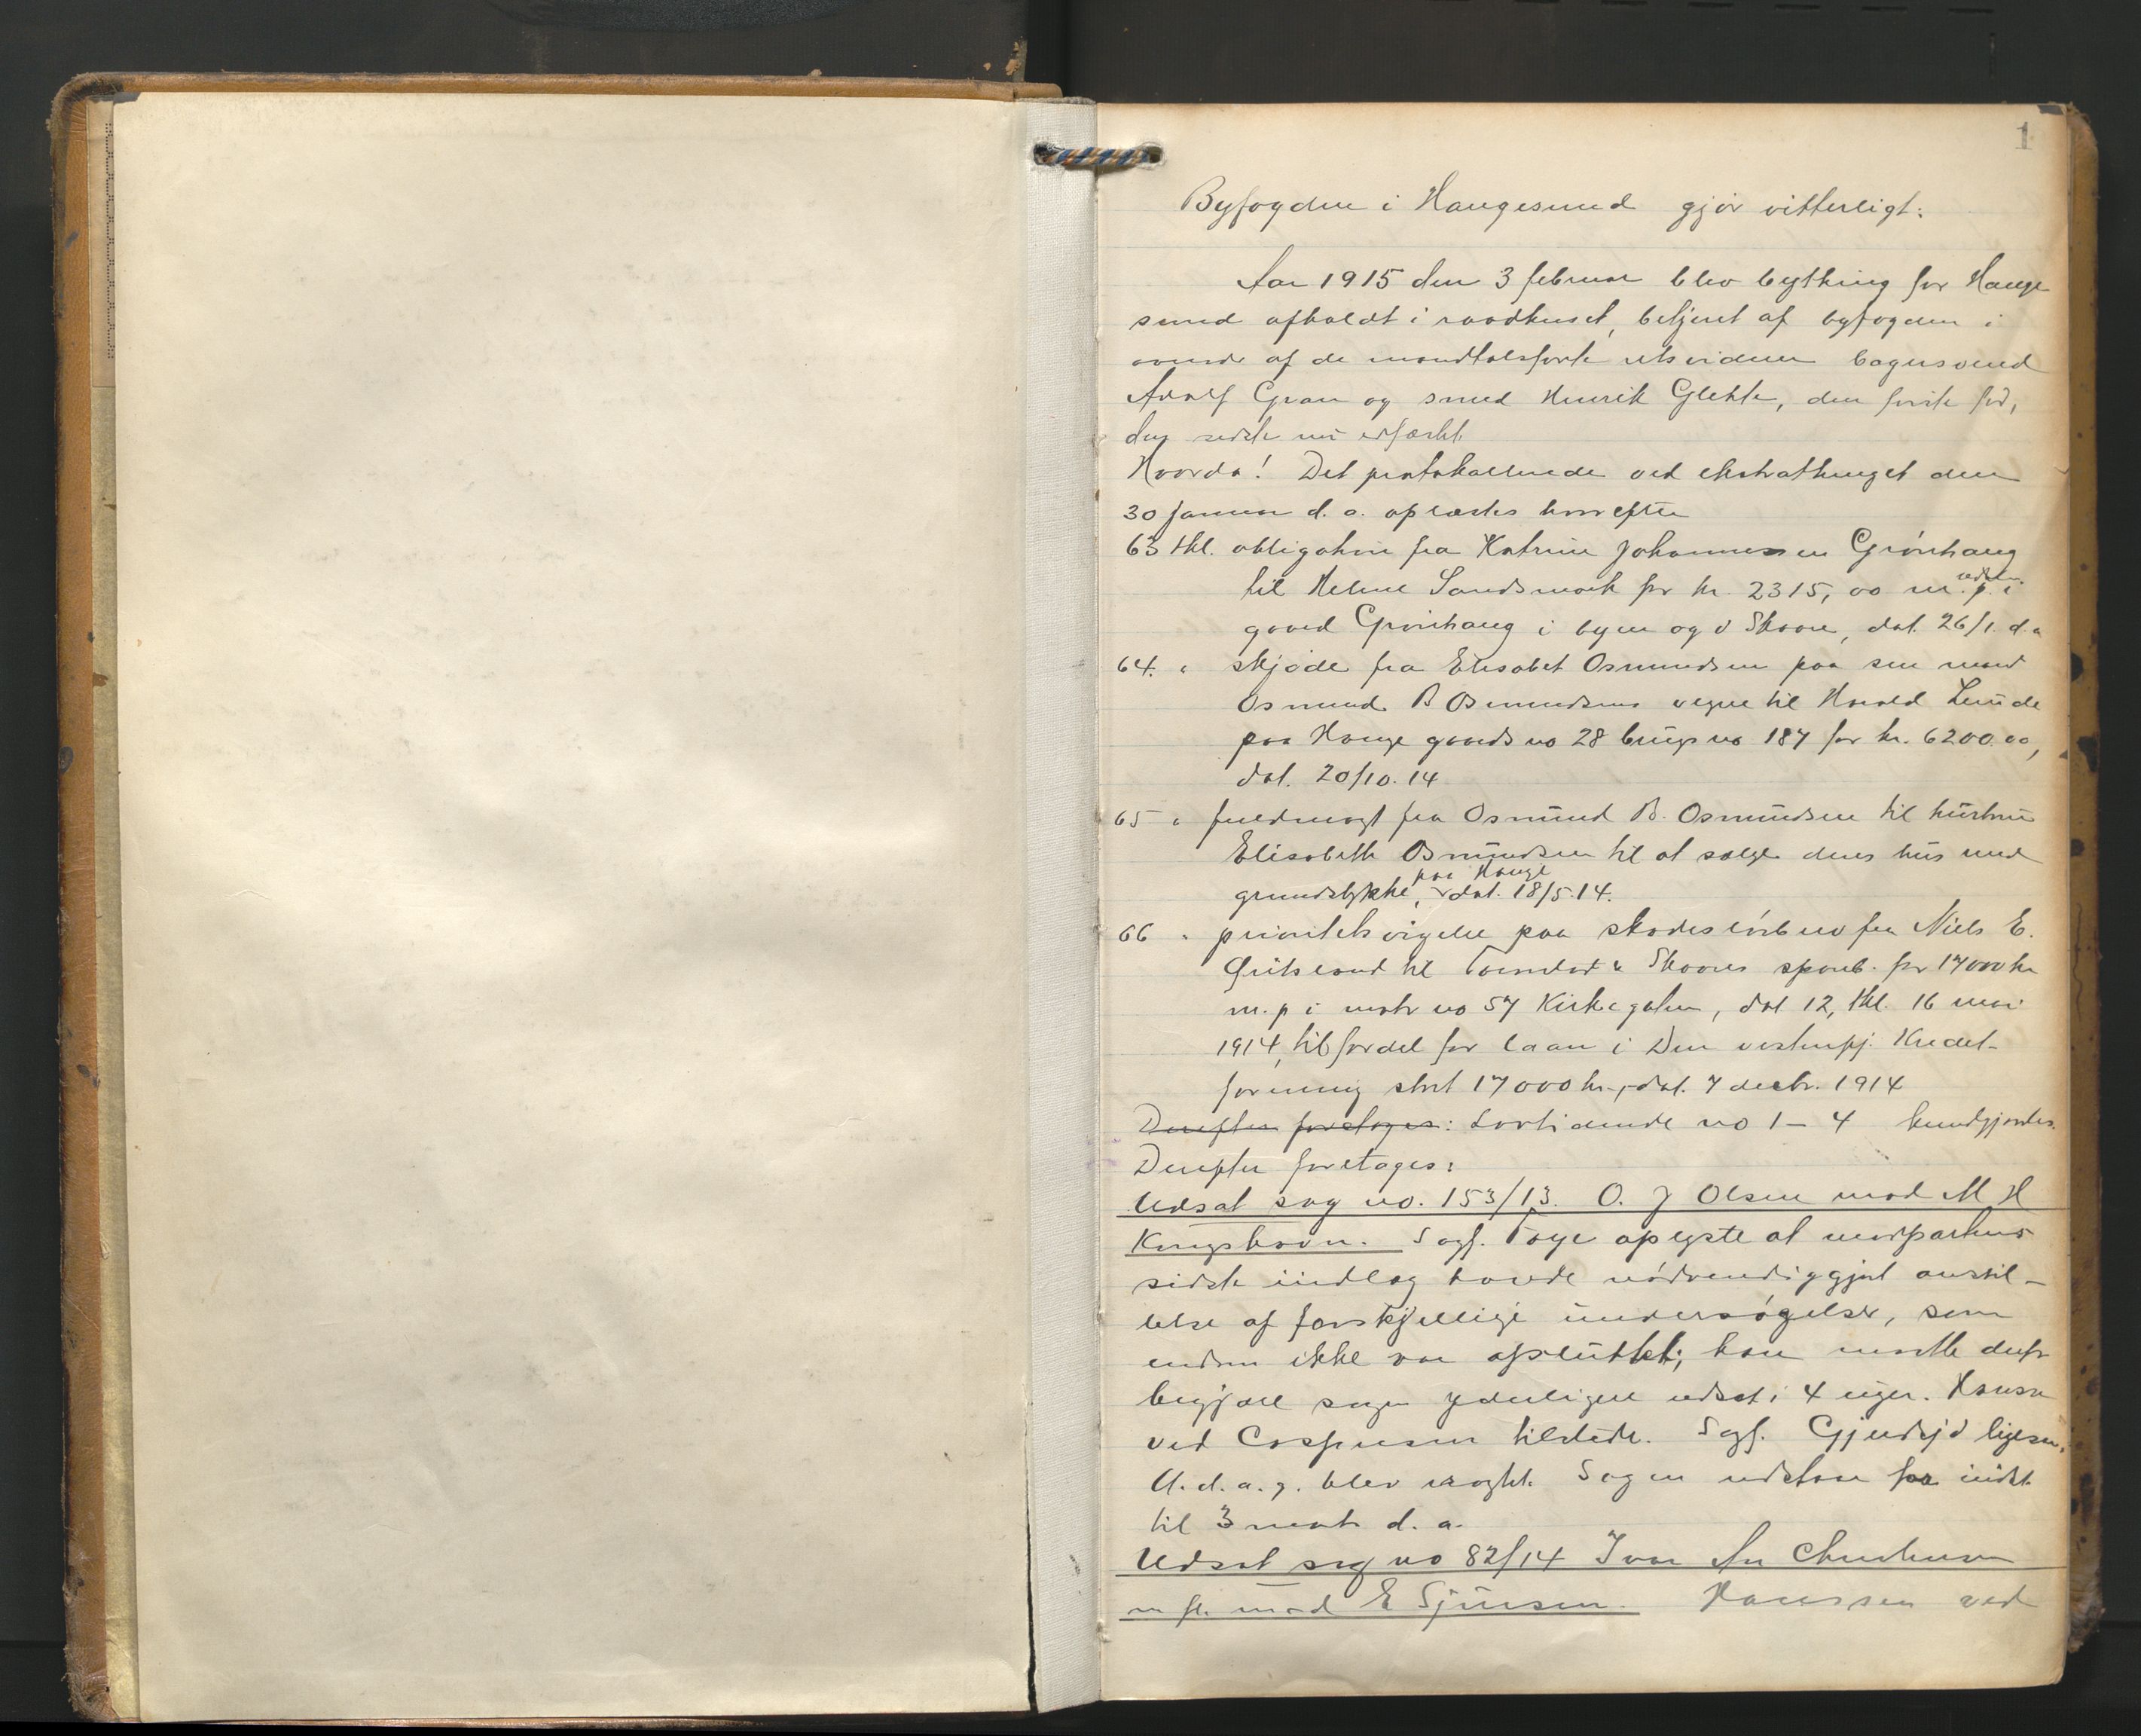 1
Byfogden i Haugesund gjør vitterligt:
Aar 1915 den 3 februar blev bything for Hauge
sund afholdt i raadhuset, betjent af byfogden i
overvær af de mandtalsførte retsvidner bagersvend
Adolf Gran og smed Henrik Glette, den første før,
den sidste nu edfæstet.
Hvorda! Det protokollerede ved ekstrathinget den
30 januar d. a. oplæstes hvorefter
63 thl. obligation fra Katrine Johannessen Grønhaug
til Helene Sandsmark for kr. 2315,00 m. p. i
gaard Grønhaug i byen og i Skaare, dat. 26/1. d. a
64. " skjøde fra Elisabet Osmundsen paa sin mand
Osmund B Osmundsens vegne til Harald Lunde
paa Hauge gaards no 28 brugs no 187 for kr. 6200.00,
dat. 20/10. 14
65 " fuldmagt fra Osmund B. Osmundsen til hustru
Elisabeth Osmundsen til at sælge deres hus med
grundstykke, paa Hauge dat. 18/5. 14.
66 " prioritetsvigelse paa skadesløsbrev fra Niels E.
til Torvestad & Skaares spareb. for 17000 kr
m. p i matr no 57 Kirkegaten, dat 12, thl. 16 mai
1914, til fordel for laan i Den vestenfj. Kredit-
forening stort 17000 kr., dat. 7 decbr. 1914
Derefter foretoges: Lovtidende no 1 - 4 kundgjordes.
Derefter foretoges:
Udsat sag no. 153/13. O. J Olsen mod M H
Kongshavn. Sagf. Toge oplyste at modpartens
sidste indlæg havde nødvendiggjort anstil-
lelse af forskjellige undersøgelser, som
endnu ikke var afsluttet; han maatte derfor
begjære sagen yderligere udsat i 4 uger. Hansen
ved Caspersen tilstede. Sagf. ligesaa.
U. d. a. g. blev modtat. Sagen udstaar indt.
til 3 marts d. a.
Udsat sag no 82/14 Ivar An Christensen
m fl. mod E Sjursen. Hanssen ved